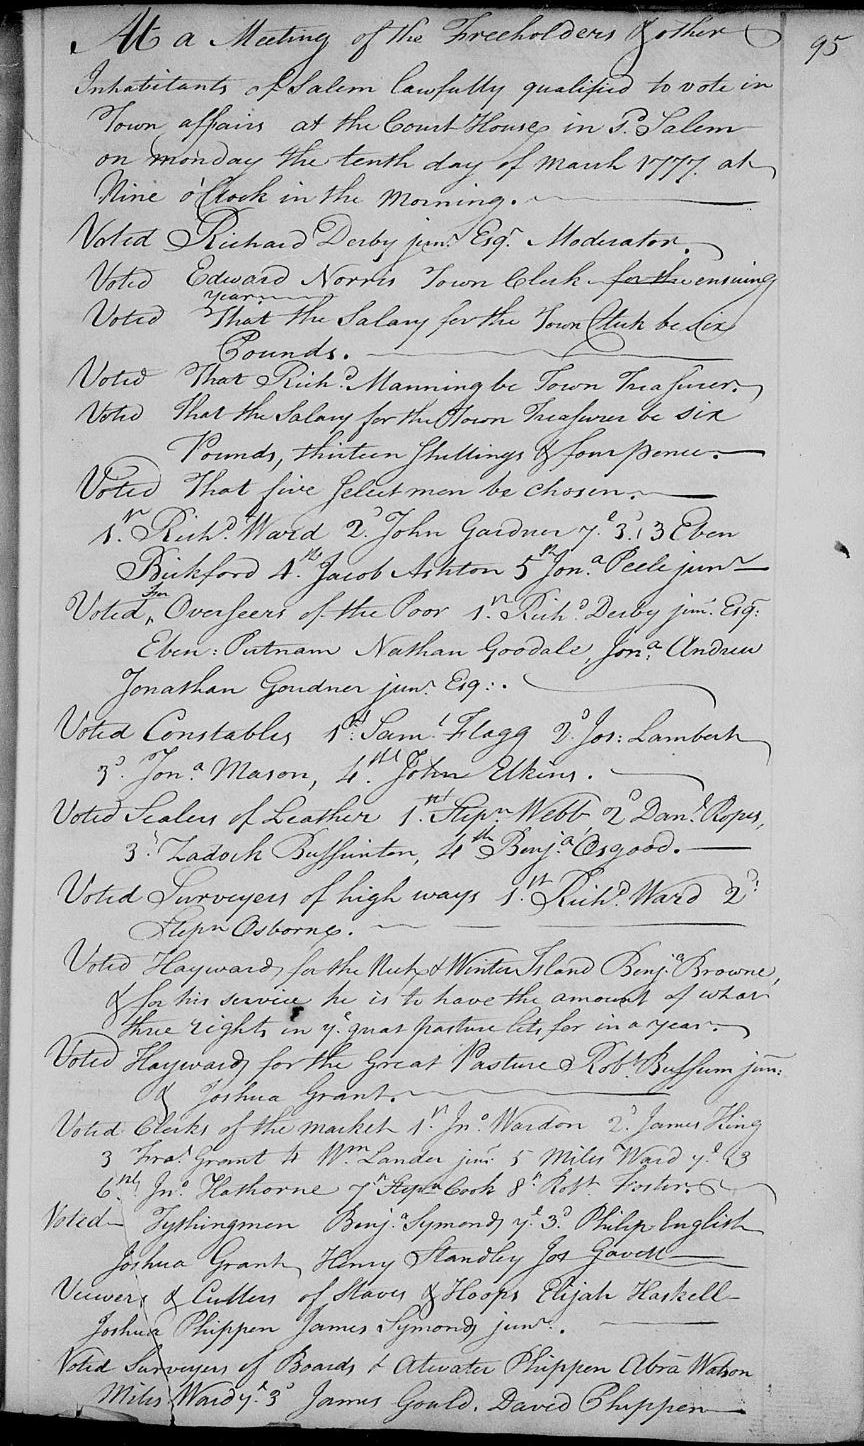 95
At a Meeting of the Freeholders & other
Inhabitants of Salem lawfully qualified to vote in
Town affairs at the Court House in sd. Salem
on monday the tenth day of March 1777. at
Nine o'Clock in the Morning.
Voted Richard Derby junr. Esqr. Moderator.
Voted Edward Norris Town Clerk for the ensuing
year.
Voted That the Salary for the Town Clerk be six
Pounds.
Voted That Richd. Manning be Town Treasurer.
Voted that the Salary for the Town Treasurer be six
Pounds, thirteen shillings & four pence.
Voted That five Select men be chosen.
1st. Richd. Ward 2d. John Gardner ye. 3d. 3 Eben
Bickford 4th. Jacob Ashton 5th Jona. Peele junr
Voted for Overseers of the Poor 1st. Richd. Derby junr. Esq:
Eben: Putnam Nathan Goodale, Jona. Andrew
Jonathan Gardner junr. Esq:.
Voted Constables 1st. Saml. Flagg 2d. Jos: Lambert
3d. Jona. Mason, 4th. John Elkins.
Voted Sealers of Leather 1st. Stepn. Webb 2d Danl. Ropes,
3d. Zadock Buffinton, 4th Benja. Osgood.
Voted Surveyers of high ways 1st. Richd. Ward 2d.
Stepn Osborne.
Voted Hayward for the Neck & Winter Island Benja. Browne,
& for his service he is to have the amount of what
three rights in ye. great pasture lets for in a year.
Voted Haywards for the Great Pasture Robt. Buffum jun:
& Joshua Grant.
Voted Clerks of the market 1st. Jno. Wardon 2d. James King
3 Fras. Grant 4 Wm. Lander junr. 5 Miles Ward ye. 3
6th. Jno. Hathorne 7th Stepn Cook 8th Robt. Foster.
Voted Tythingmen Benja. Symonds ye. 3d. Philip English
Joshua Grant, Henry Standley Jos Gavett
Viewers & Cullers of Staves & Hoops Elijah Haskell
Joshua Phippen James Symonds junr.
Voted Surveyors of Boards Atwater Phippen Abra Watson
Miles Ward ye. 3d James Gould. David Phippen